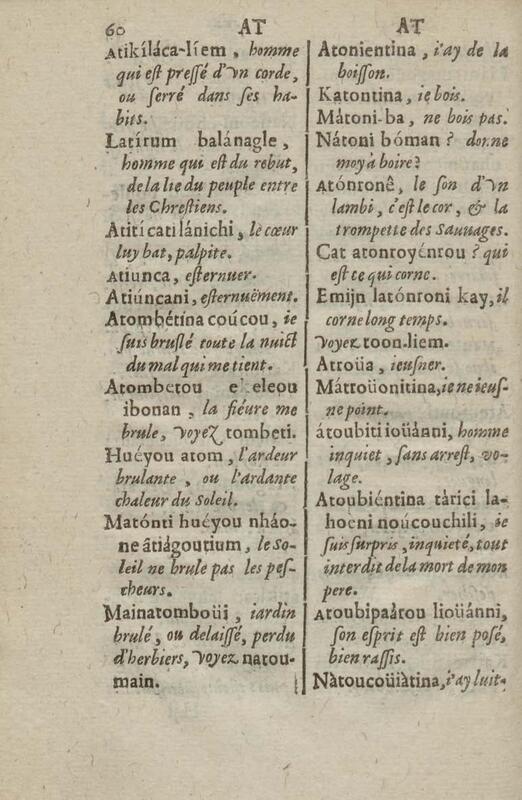 60 AT AT
Atikíláca-líem, homme
qui est pressé d'vn corde,
ou serré dans ses ha-
bits.
Latírum balánagle,
homme qui est du rebut,
de la lie du peuple entre
les Chrestiens.
Atitícatilánichi, le cœur
luy bat, palpite.
Atiunca, esternuer.
Atiúncani, esternuëment.
Atombétina coúcou, ie
suis bruslé toute la nuict
du mal qui me tient.
Atombetou eleleou
ibonan, la fiéure me
brule, voyez tombeti.
Huéyou atom, l'ardeur
brulante, ou l'ardante
chaleur du Soleil.
Matónti huéyou nháo-
ne âtiágoutium, le So-
leil ne brule pas les pes-
cheurs.
Mainatomboüi, iardin
brulé, ou delaissé, perdu
d'herbiers, voyez natou-
main.
Atonientina, i'ay de la
boisson.
Katontina, ie bois.
Mátoni-ba, ne bois pas.
Nátoni bóman? donne
moy à boire?
Atónronê, le son d'vn
lambi, c'est le cor, & la
trompette des Sauuages.
Cat atonroyénrou? qui
est ce qui corne.
Emijn latónroni kay, il
corne long temps.
voyez toon-liem.
Atroüa, ieusner.
Mátroüonitina, ie ne ieus-
ne point.
átoubiti ioüánni, homme
inquiet, sans arrest, vo-
lage.
Atoubiéntina tàrici la-
hoeni noúcouchili, ie
suis surpris, inquieté, tout
interdit de la mort de mon
pere.
Atoubipaàrou lioüánni,
son esprit est bien posé,
bien rassis.
Nàtoucoüiàtina, i'ay luit-